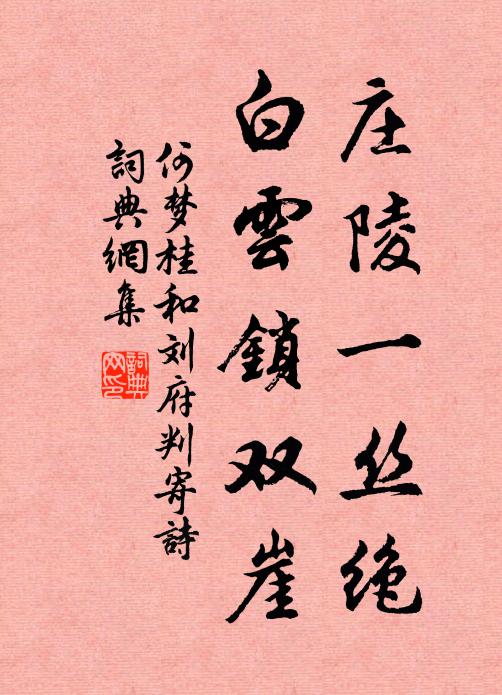 庄陵一丝绝
白雲鎖双崖
何梦桂和刘府判寄詩
詞典網集
詞典网印